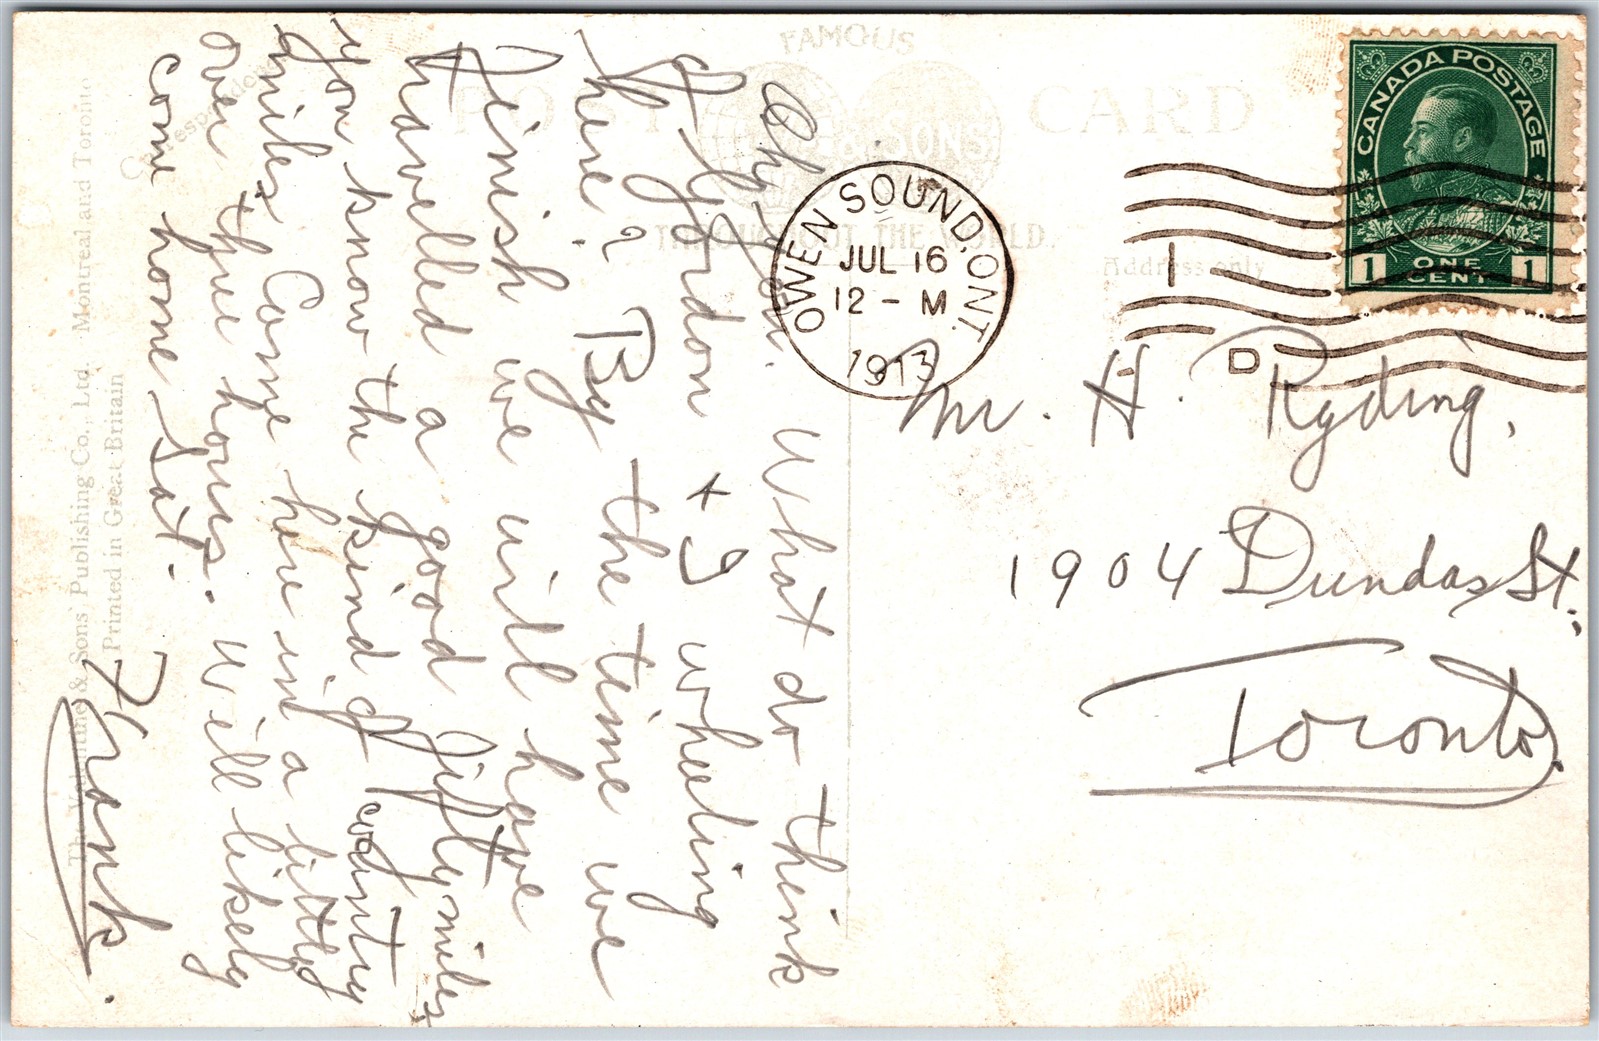 FAMOUS
POST CARD
& SONS
THROUGHOUT THE WORLD.
Address only
Correspondence
CANADA POSTAGE
1 ONE CENT 1
OWEN SOUND, ONT.
JUL 16
12 - M
1913
D
Mr. H. Ryding,
1904 Dundas St.
Toronto.
Oh you. What do think
of Gordon + I wheeling
here? By the time we
finish we will have
travelled a good fifty miles +
you know the kind of country
miles Came here in a little
over three hours. Will likely
come home Sat.
Frank.
The Valentine & Sons' Publishing Co., Ltd. Montreal and Toronto
Printed in Great Britain